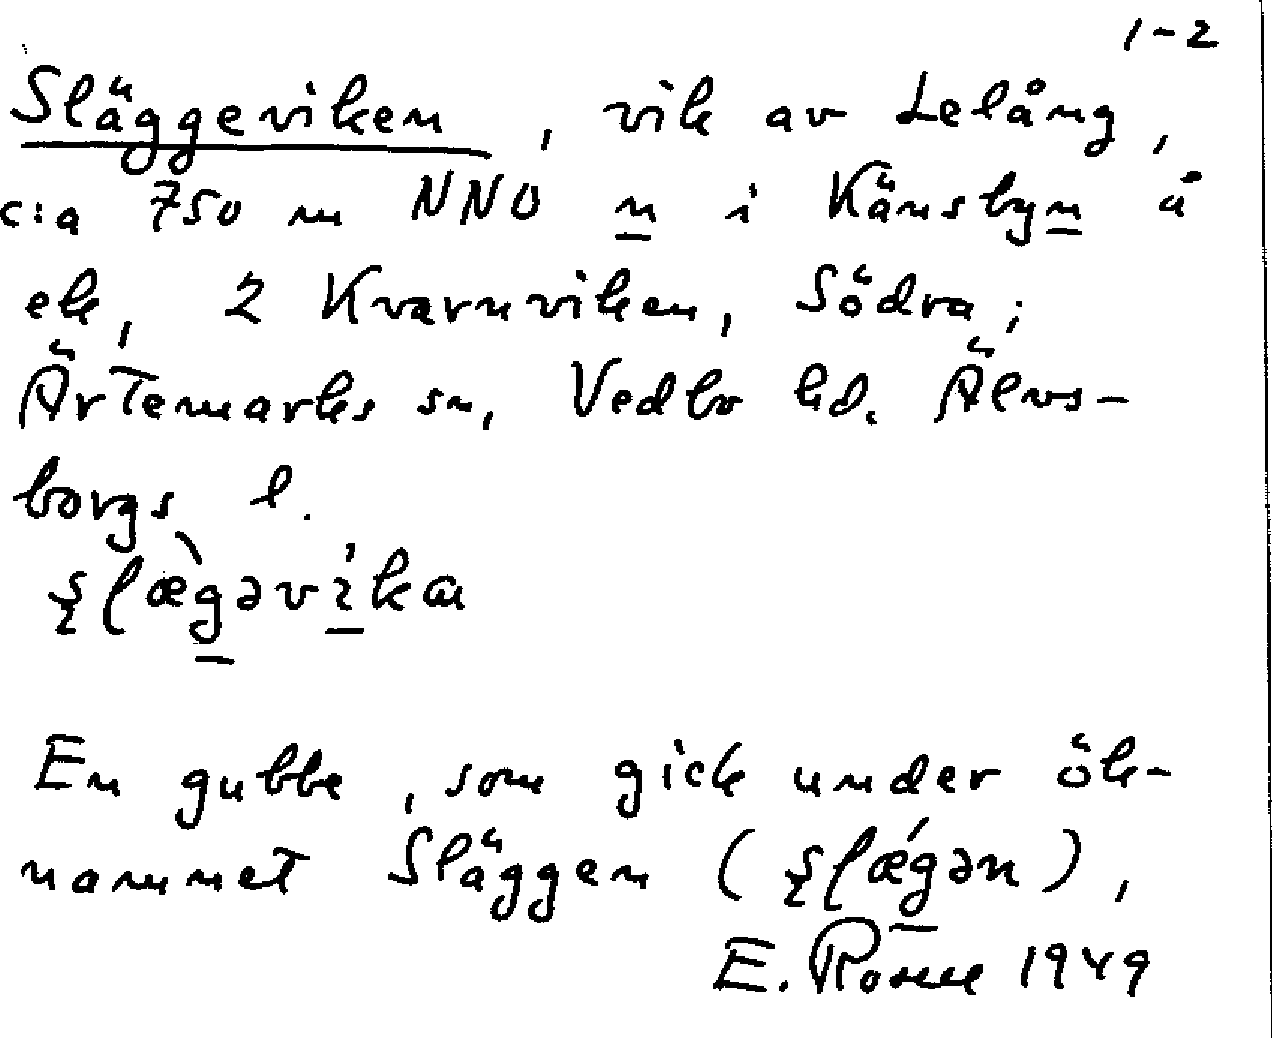 1-2
Släggeviken, vik av Lelång,
c:a 750 m NNO n i Känsbyn å
ek, 2 Kvarnviken, Södra;
Ärtemarks sn, Vedbo hd. Älvs-
borgs l.
En gubbe, som gick under ök-
namnet Släggen
E. Rosne 1949